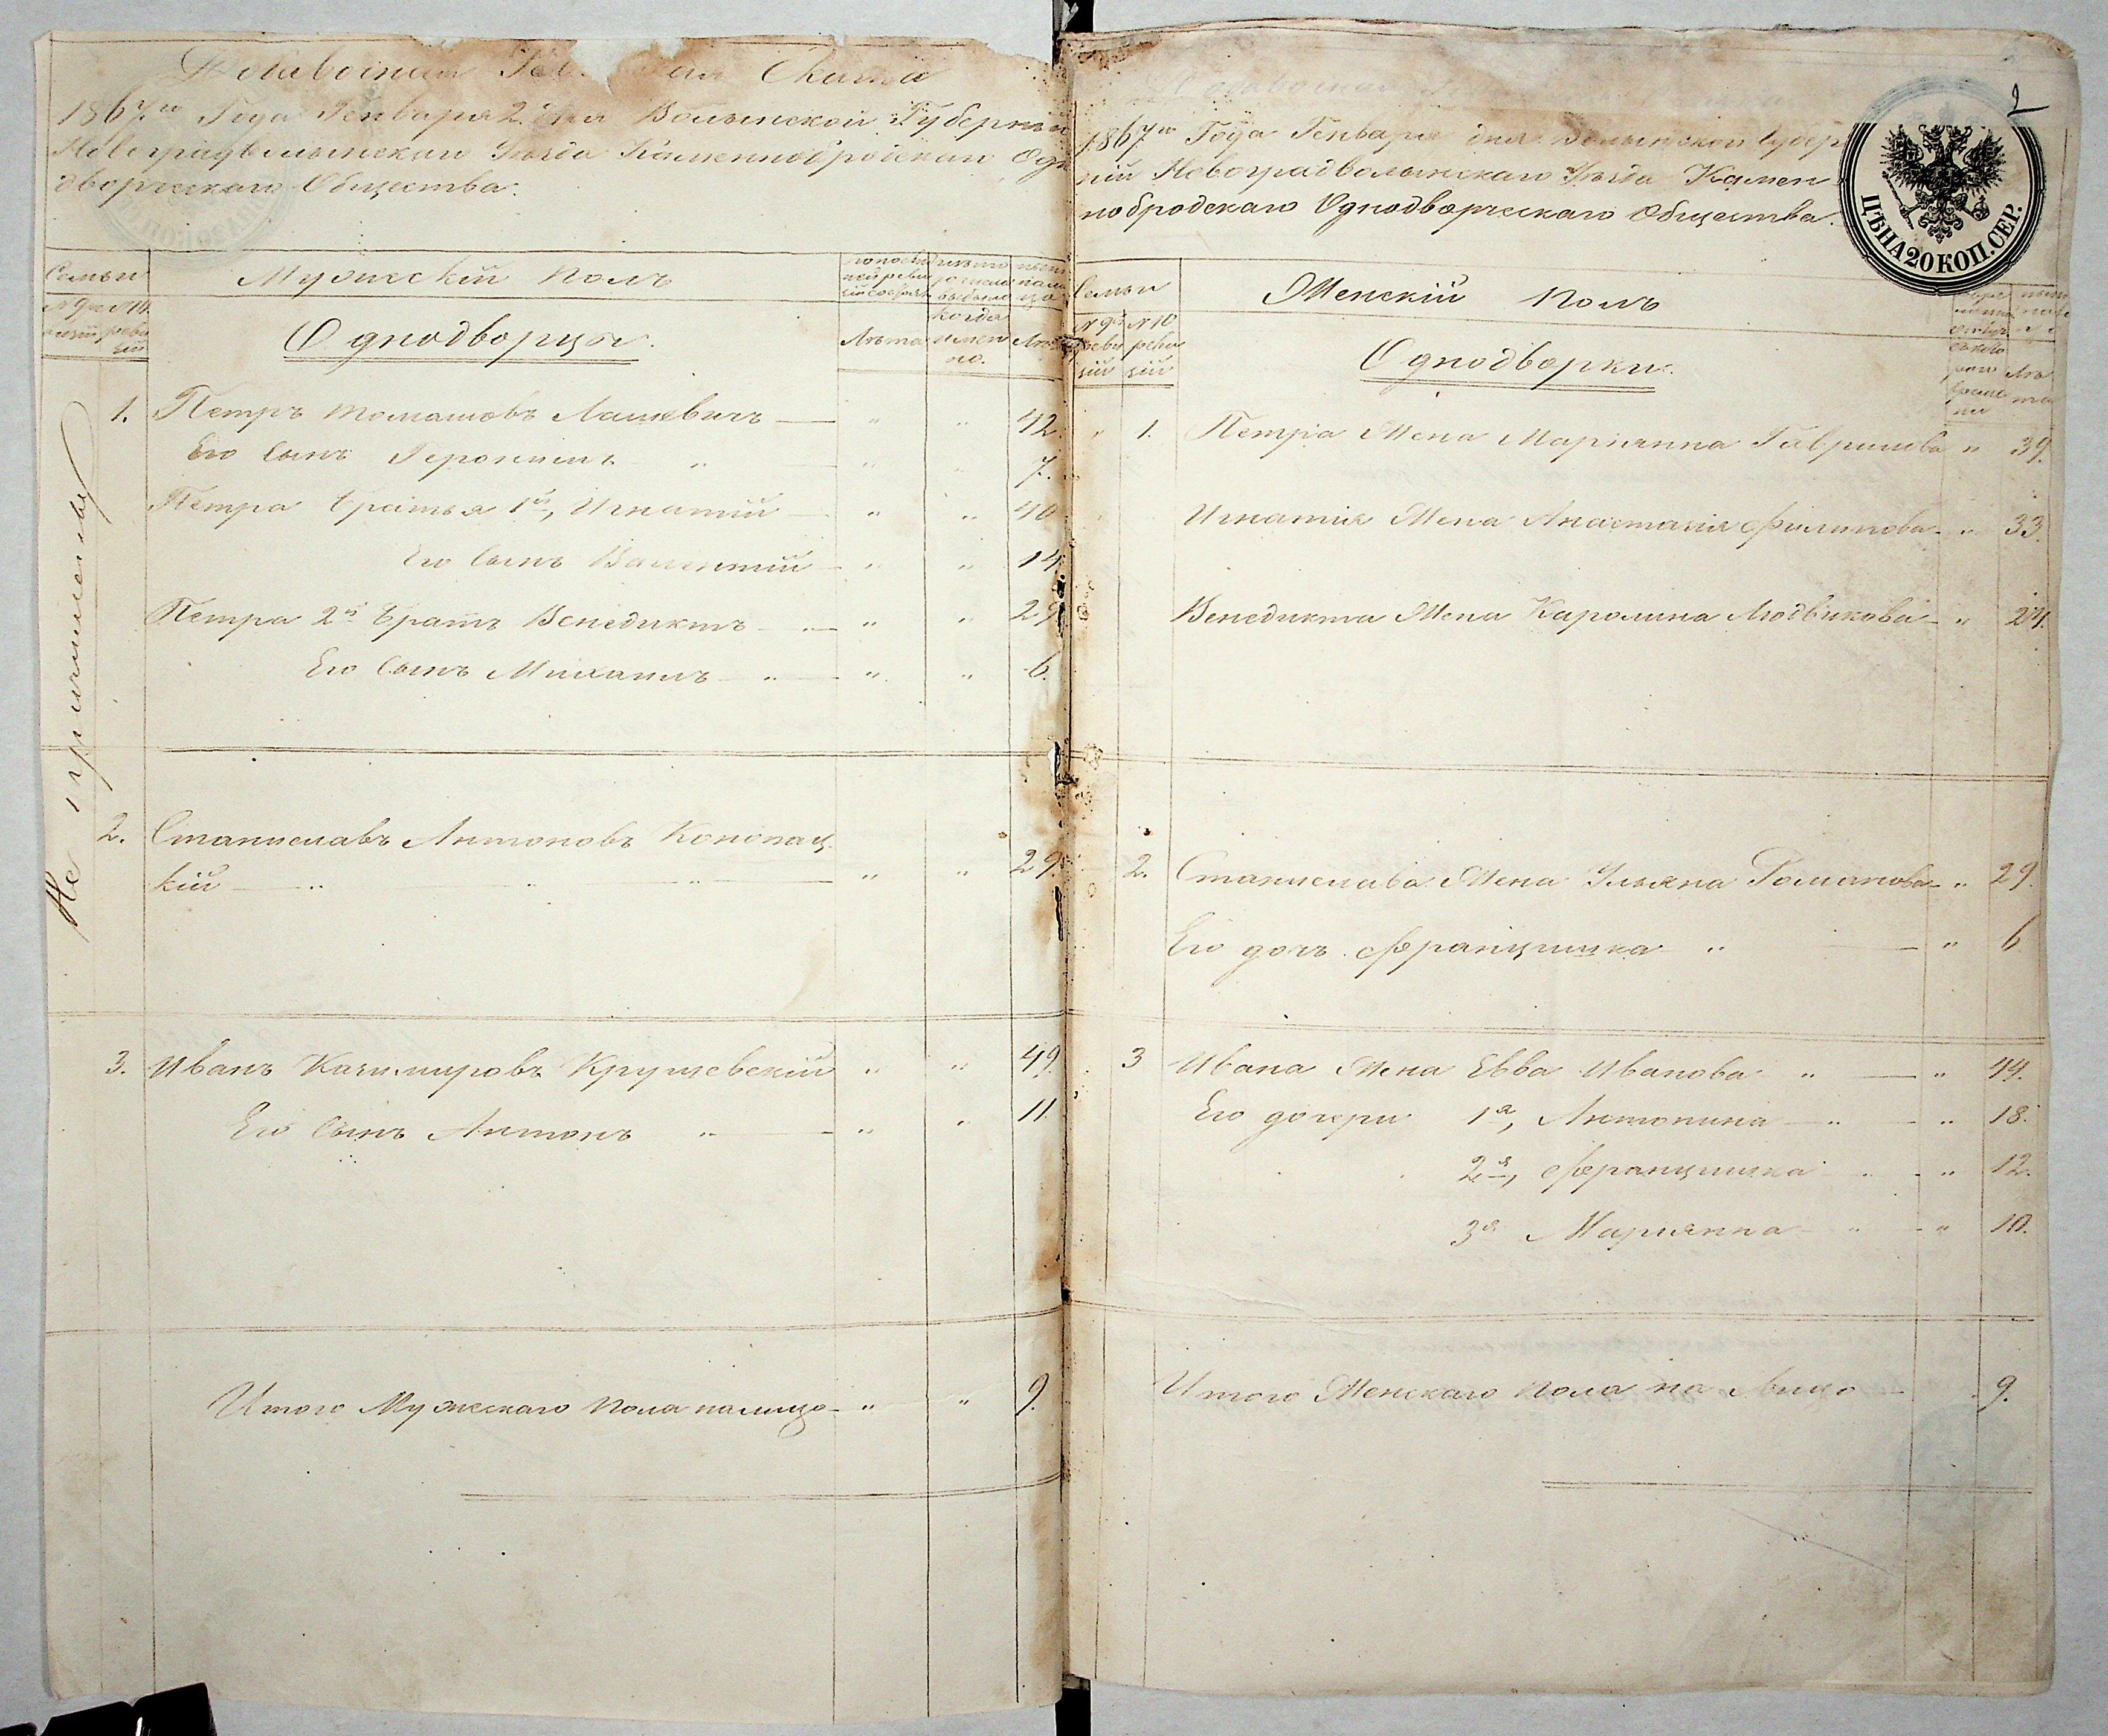 Добавочная Рев Скаска
1867го Года Генваря 2 дня Волынской Губерніи
Новоградволынскаго Уѣзда Каменнобродскаго Одн
дворческаго Общества.
Семьи
Мужескій полъ
№ 9й № 10
ревизіи
Однодворцы.
Лѣта
когда
имен
но.
Лѣта
1. Петръ Томашовъ Лашкевичъ — " " 42.
Его сынъ Геронимъ " — " " 7.
Петра братья 1й, Игнатій — " " 40
Его сынъ Валентій — " " 14
Петра 2й братъ Венедиктъ — " " 29
Его сынъ Михаилъ — " — " " 6.
Не причислены
2. Станиславъ Антоновъ Конопац
кій — " " " — " " 29.
3. Иванъ Казимировъ Крушевскій " " 49.
Его сынъ Антонъ " — " " 11.
Итого Мужескаго пола налицо — " " 9.
2
1867го Года Генваря дня Волынской Губер
ніи Новоградволынскаго Уѣзда Камен
нобродскаго Однодворческаго Общества.
ЦѢНА 20 КОП. СЕР.
Семьи
Женскій полъ
№ 9й № 10
реви реви
зіи зіи
Однодворки.
Лѣ
та
1. Петра Жена Маріянна Гаврилова " 39.
Игнатія Жена Анастазія Филипова — " 33.
Венедикта Жена Каролина Людвикова — " 24.
2. Станислава Жена Ульяна Романова — " 29.
Его дочь Францишка " — " 6
3 Ивана Жена Евва Иванова " — " 44.
Его дочери 1я, Антонина — " — " 18.
2я, Францишка — " — " 12.
3я Маріянна — " — " 10.
Итого Женскаго пола на лицо — 9.